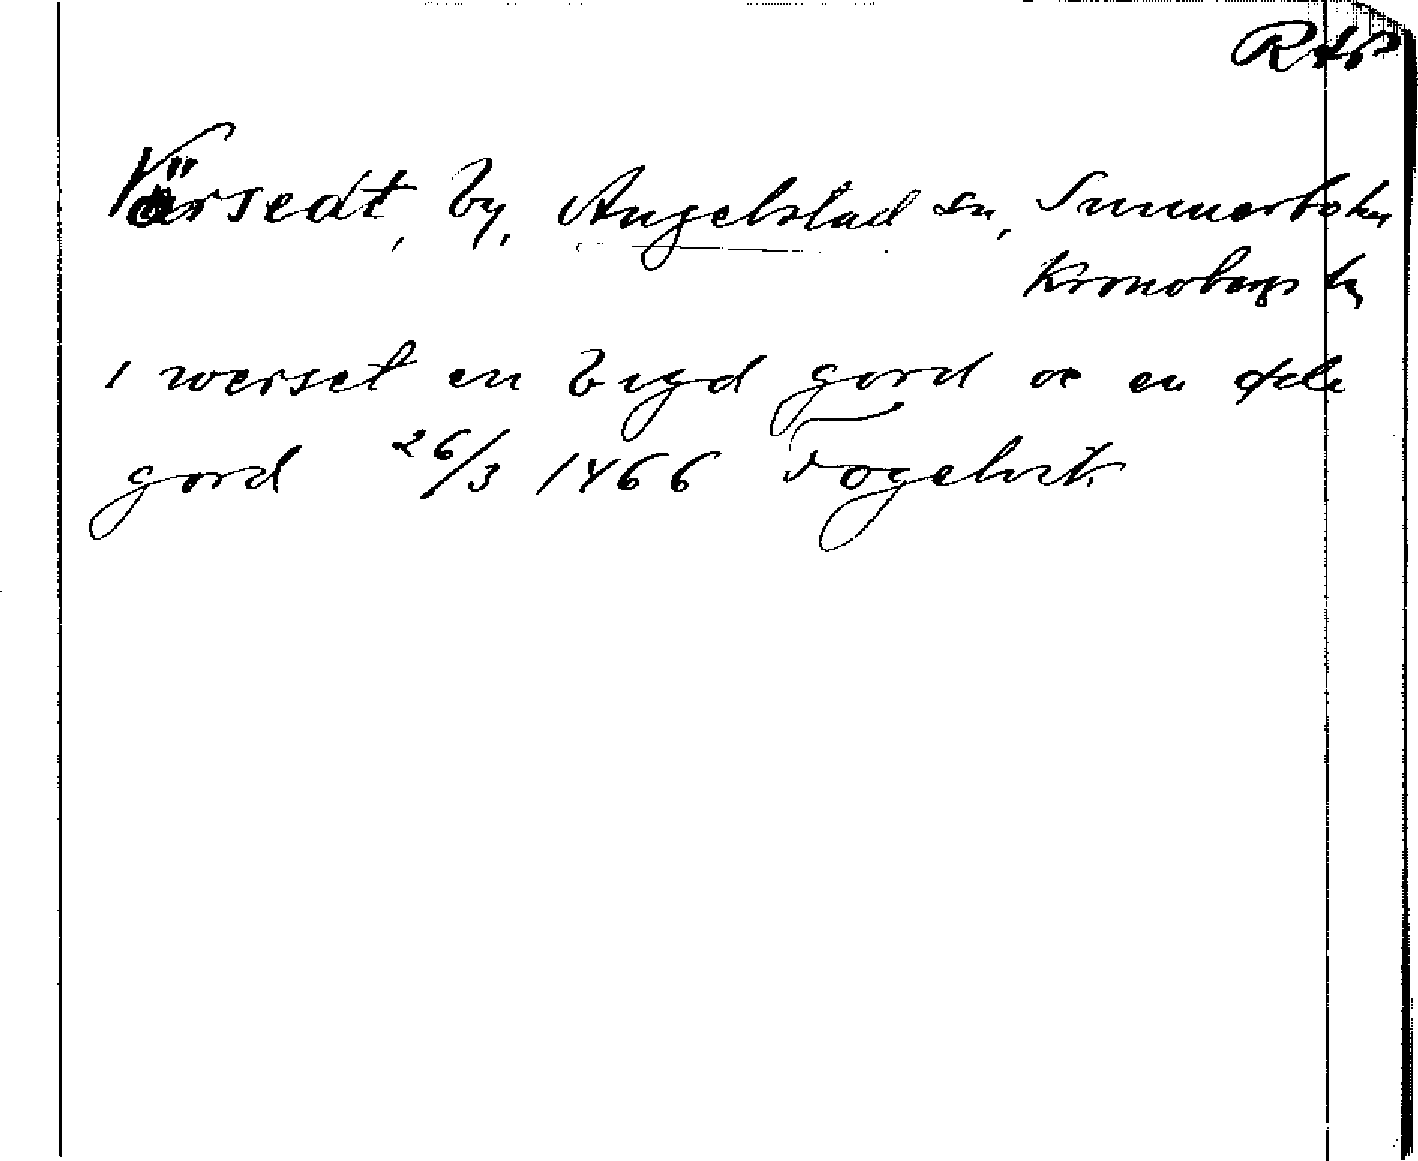 RAP
Värsedt, by, Angelstad sn, Sunnerbo hd
Kronobergs l
i werset en bygd gord oc en øde
gord 26/3 1466 Fogelvik